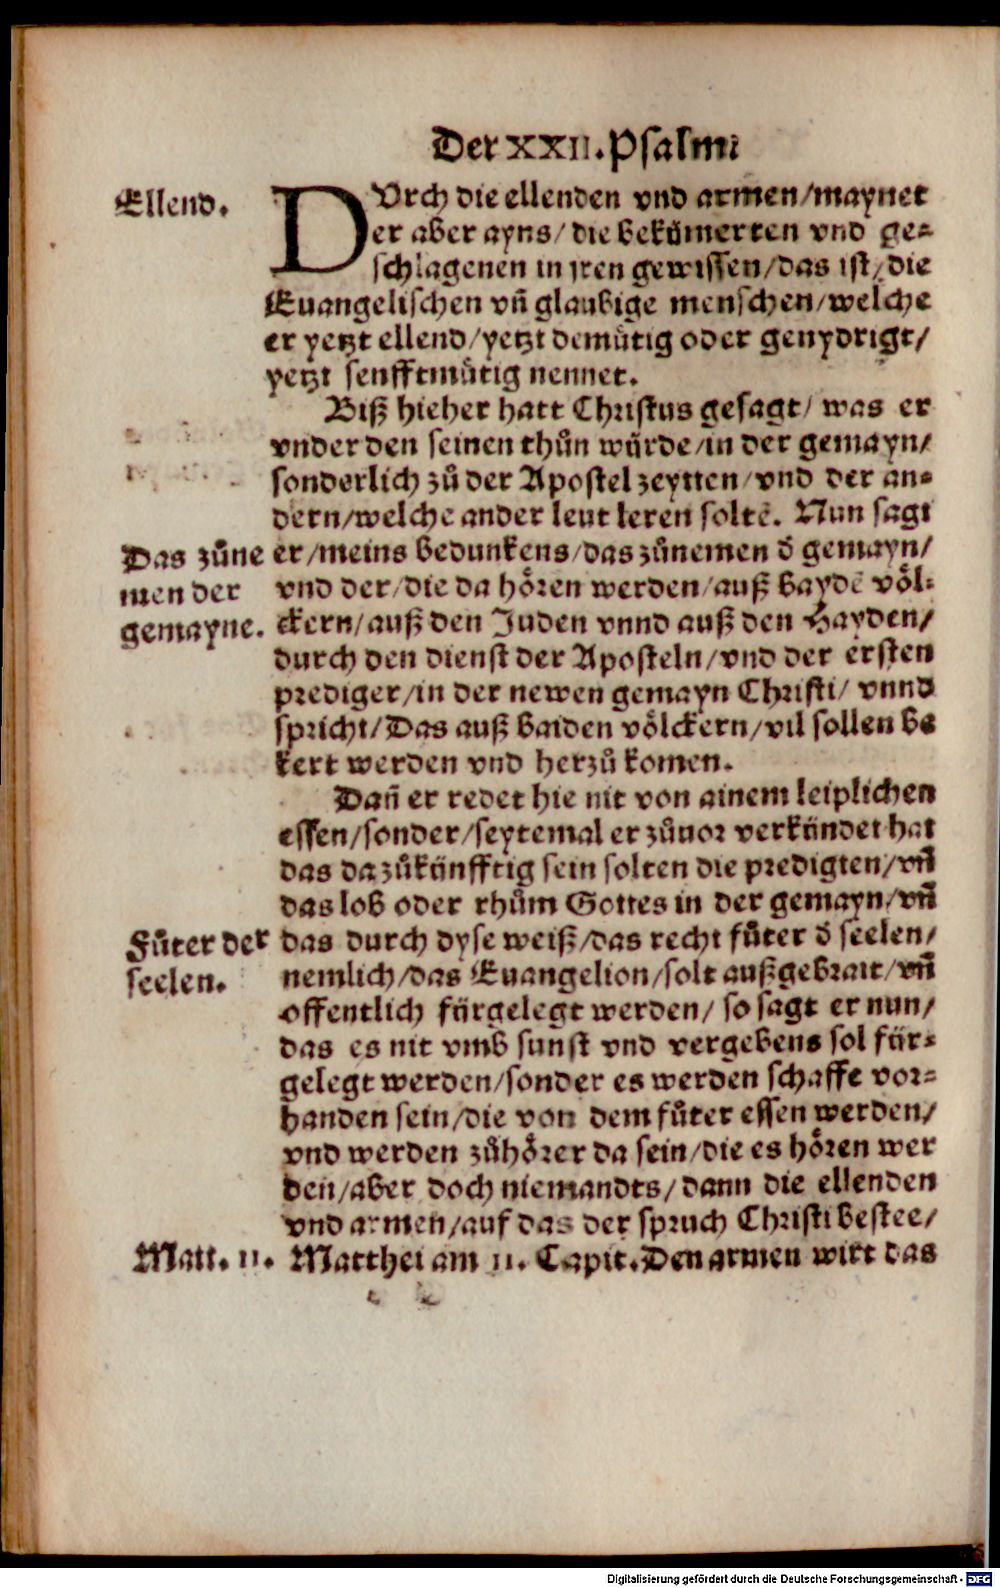 Der XXII. Psalm
Ellend.
DUrch die ellenden vnd armen/maynet
er aber ayns/die bekům̃erten vnd ge-
schlagenen in jren gewissen/das ist/die
Euangelischen vñ glaubige menschen/welche
er yetzt ellend/yetzt demuͤtig oder genydrigt/
yetzt senfftmuͤtig nennet.
Biß hieher hatt Christus gesagt/ was er
vnder den seinen thůn wuͤrde/in der gemayn/
sonderlich zů der Apostel zeytten/vnd der an-
dern/welche ander leut leren soltē. Nun sagt
Das zůne
men der
gemayne.
er/meins bedunkens/das zůnemen d̓ gemayn/
vnd der/die da hoͤren werden/auß baydē voͤl-
ckern/auß den Juden vnnd auß den Hayden/
durch den dienst der Aposteln/vnd der ersten
prediger/in der newen gemayn Christi/ vnnd
spricht/Das auß baiden voͤlckern/vil sollen be
kert werden vnd herzů komen.
Dañ er redet hie nit von ainem leiplichen
essen/sonder/seytemal er zůuor verkündet hat
das da zůkünfftig sein solten die predigten/vñ
das lob oder rhům Gottes in der gemayn/vñ
Fůter der
seelen.
das durch dyse weiß/das recht fůter d̓ seelen/
nemlich/das Euangelion/solt außgebrait/vñ
offentlich fürgelegt werden/ so sagt er nun/
das es nit vmb sunst vnd vergebens sol für-
gelegt werden/sonder es werden schaffe vor-
handen sein/die von dem fůter essen werden/
vnd werden zůhoͤrer da sein/die es hoͤren wer
den/aber doch niemandts/dann die ellenden
vnd armen/auf das der spruch Christi bestee/
Matt. 11.
Matthei am 11. Capit. Den armen wirt das
Digitalisierung gefördert durch die Deutsche Forschungsgemeinschaft - DFG